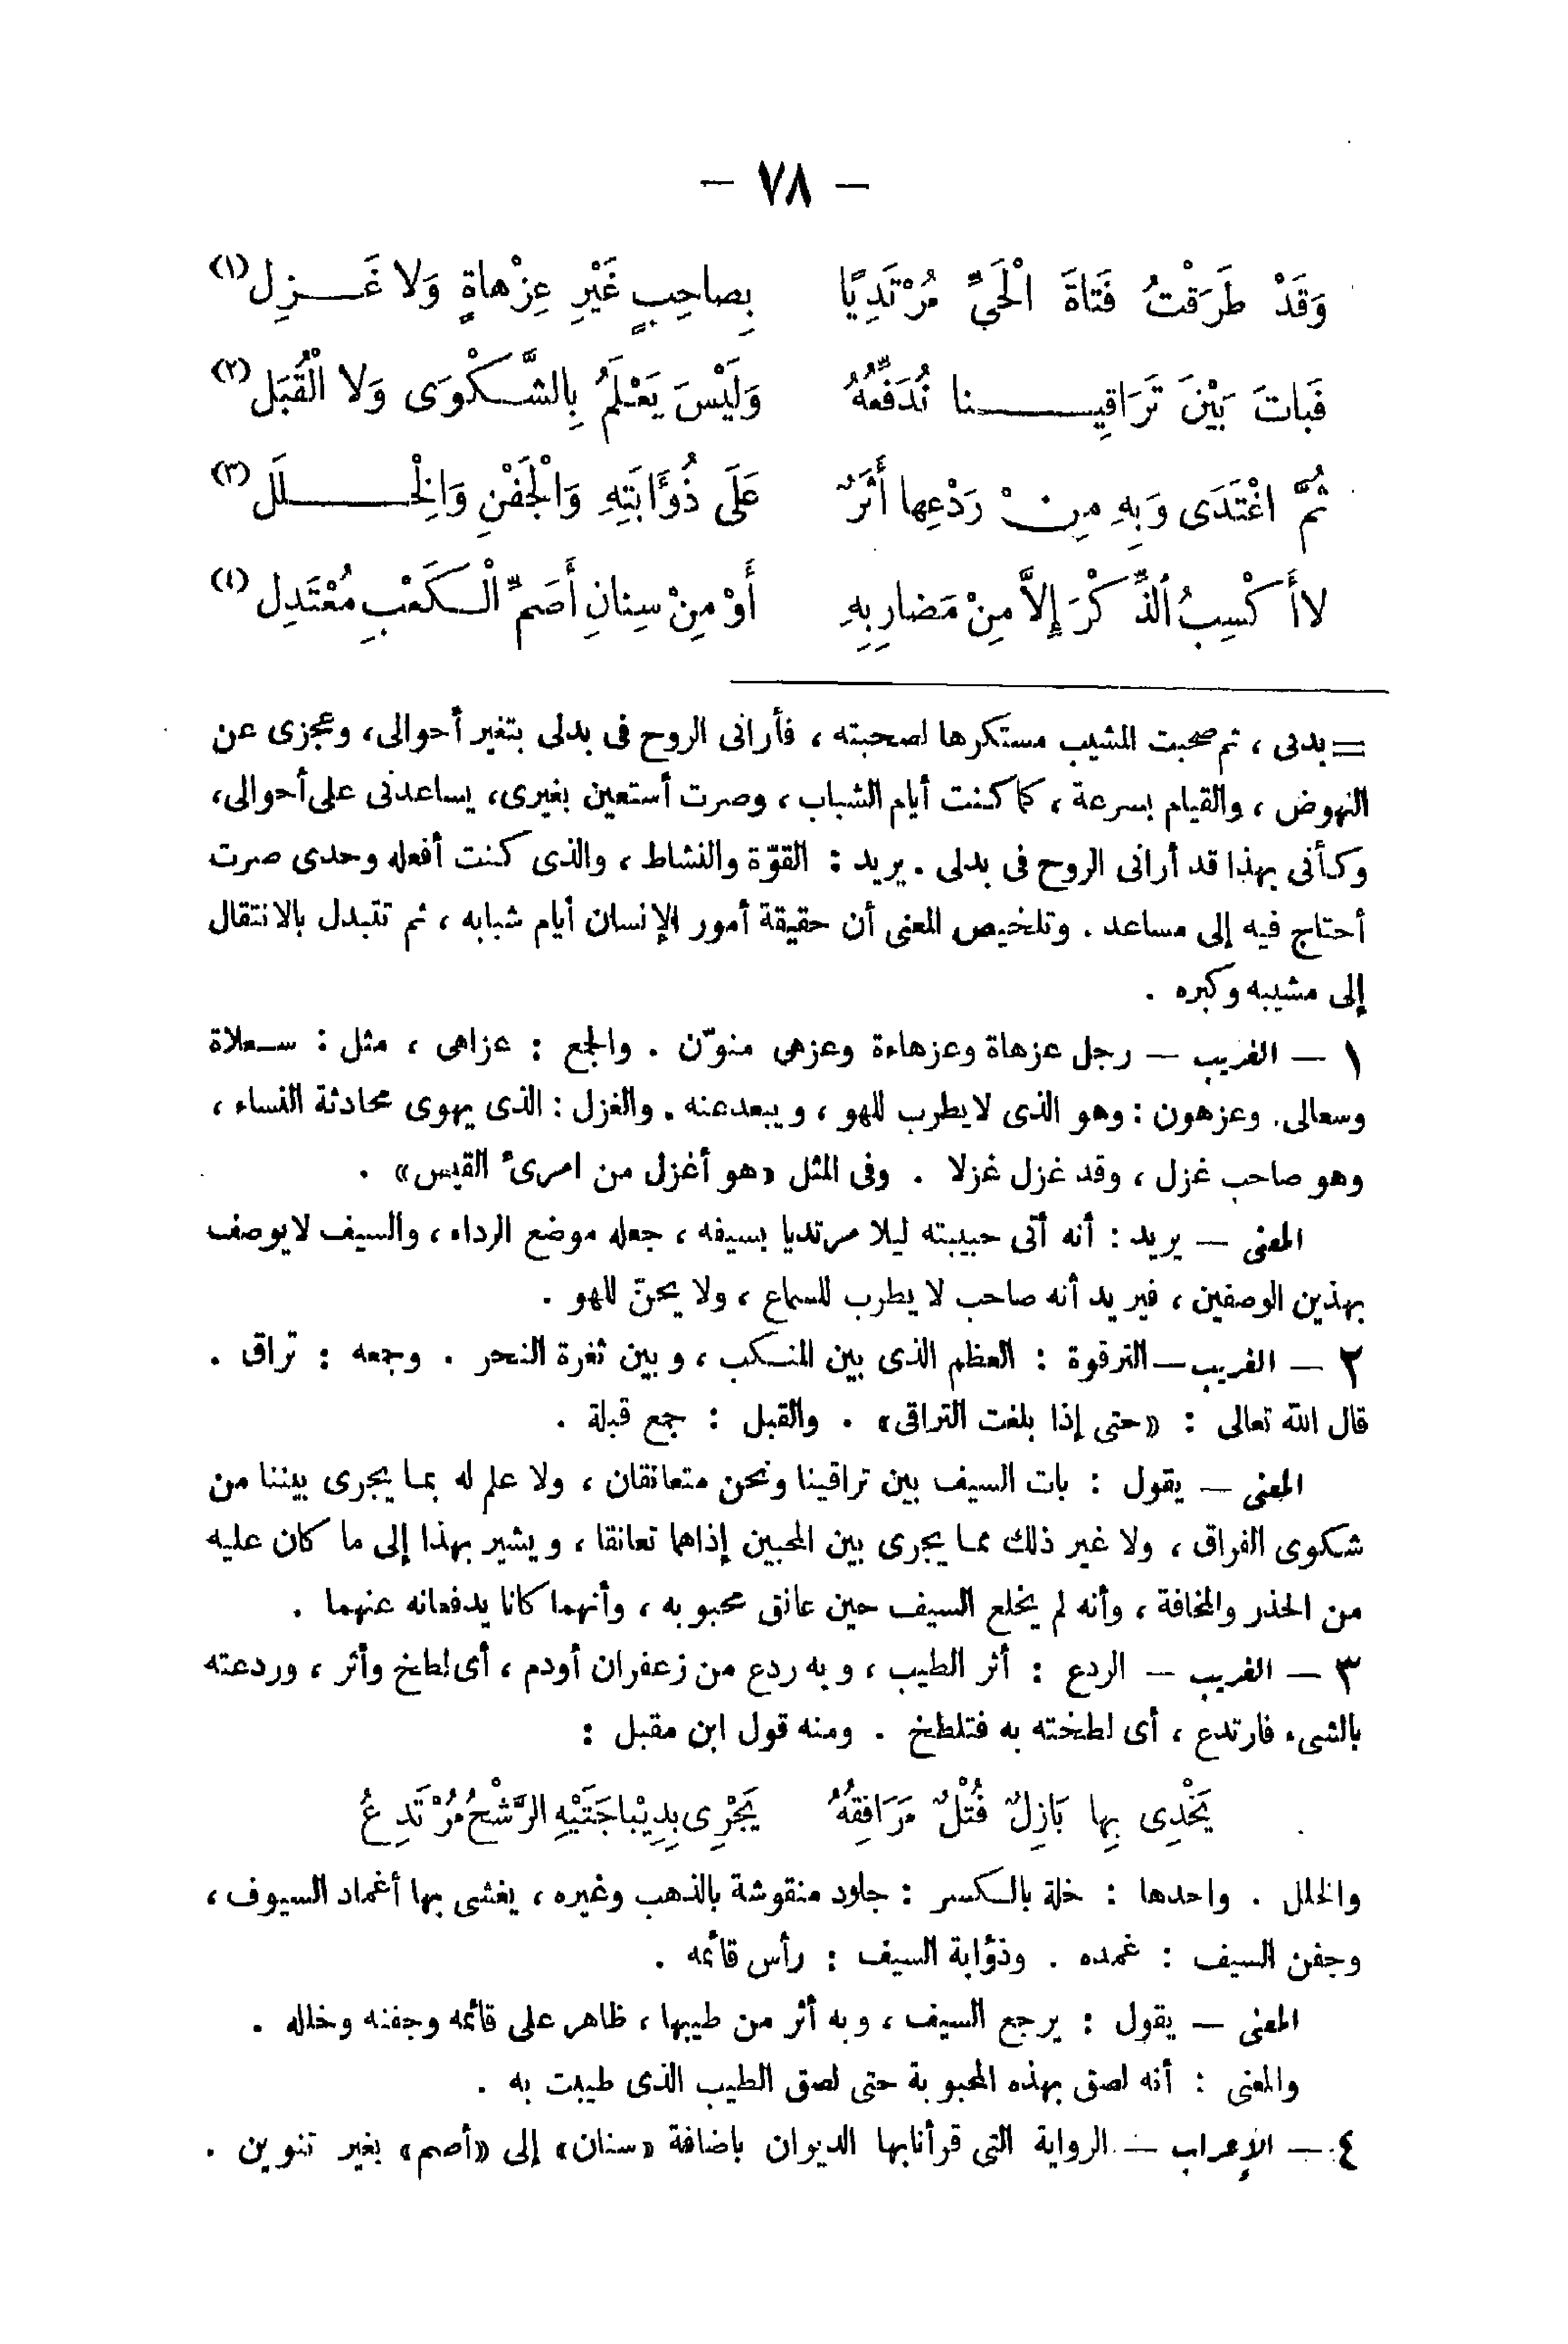 — ٧٨ —
وَقَدْ طَرَقْتُ فَتَاةَ الْحَيِّ مُرْتَدِيًا بِصاحِبٍ غَيْرِ عِزْهاةٍ وَلا غَــزِلِ (١)
فَباتَ بَيْنَ تَرَاقِيــنا نُدَفِّعُهُ وَلَيْسَ يَعْلَمُ بِالشَّكْوَى وَلا الْقُبَلِ (٢)
ثُمَّ اغْتَدَى وَبِهِ مِنْ رَدْعِها أَثَرٌ عَلَى ذُؤَابَتِهِ وَالْجَفْنِ وَالْخِــلَلِ (٣)
لا أَكْسِبُ الذِّكْرَ إِلاَّ مِنْ مَضارِبِهِ أَوْ مِنْ سِنانِ أَصَمِّ الْكَعْبِ مُعْتَدِلِ (٤)
= بدنى ، ثم صحبت المشيب مستكرها لصحبته ، فأرانى الروح فى بدلى بتغير أحوالى، وعجزى عن
النهوض ، والقيام بسرعة ، كما كنت أيام الشباب ، وصرت أستعين بغيرى، يساعدنى على أحوالى،
وكأنى بهذا قد أرانى الروح فى بدلى . يريد : القوّة والنشاط ، والذى كنت أفعله وحدى صرت
أحتاج فيه إلى مساعد . وتلخيص المعنى أن حقيقة أمور الإنسان أيام شبابه ، ثم تتبدل بالانتقال
إلى مشيبه وكبره .
١ — الغريب — رجل عزهاة وعزهاءة وعزهى منوّن . والجمع : عزاهى ، مثل : سعلاة
وسعالى. وعزهون : وهو الذى لا يطرب للهو ، ويبعد عنه . والغزل : الذى يهوى محادثة النساء ،
وهو صاحب غزل ، وقد غزل غزلا . وفى المثل «هو أغزل من امرئ القيس» .
المعنى — يريد : أنه أتى حبيبته ليلا مرتديا بسيفه ، جعله موضع الرداء ، والسيف لا يوصف
بهذين الوصفين ، فيريد أنه صاحب لا يطرب للسماع ، ولا يحنّ للهو .
٢ — الغريب — الترقوة : العظم الذى بين المنكب ، وبين ثغرة النحر . وجمعه : تراق .
قال الله تعالى : «حتى إذا بلغت التراقى» . والقبل : جمع قبلة .
المعنى — يقول : بات السيف بين تراقينا ونحن متعانقان ، ولا علم له بما يجرى بيننا من
شكوى الفراق ، ولا غير ذلك مما يجرى بين المحبين إذا هما تعانقا ، ويشير بهذا إلى ما كان عليه
من الحذر والمخافة ، وأنه لم يخلع السيف حين عانق محبوبه ، وأنهما كانا يدفعانه عنهما .
٣ — الغريب — الردع : أثر الطيب ، وبه ردع من زعفران أودم ، أى لطخ وأثر ، وردعته
بالشىء فارتدع ، أى لطخته به فتلطخ . ومنه قول ابن مقبل :
يَخْدِى بِها بَازِلٌ فُتْلٌ مَرَافِقُهُ يَجْرِى بِدِيْباجَتَيْهِ الرَّشْحُ مُرْتَدِعُ
والخلل . واحدها : خلة بالكسر : جلود منقوشة بالذهب وغيره ، يغشى بها أغماد السيوف ،
وجفن السيف : غمده . وذؤابة السيف : رأس قائمه .
المعنى — يقول : يرجع السيف ، وبه أثر من طيبها ، ظاهر على قائمه وجفنه وخلله .
والمعنى : أنه لصق بهذه المحبوبة حتى لصق الطيب الذى طيبت به .
٤ — الإعراب — الرواية التى قرأنا بها الديوان باضافة «سنان» إلى «أصم» بغير تنوين .